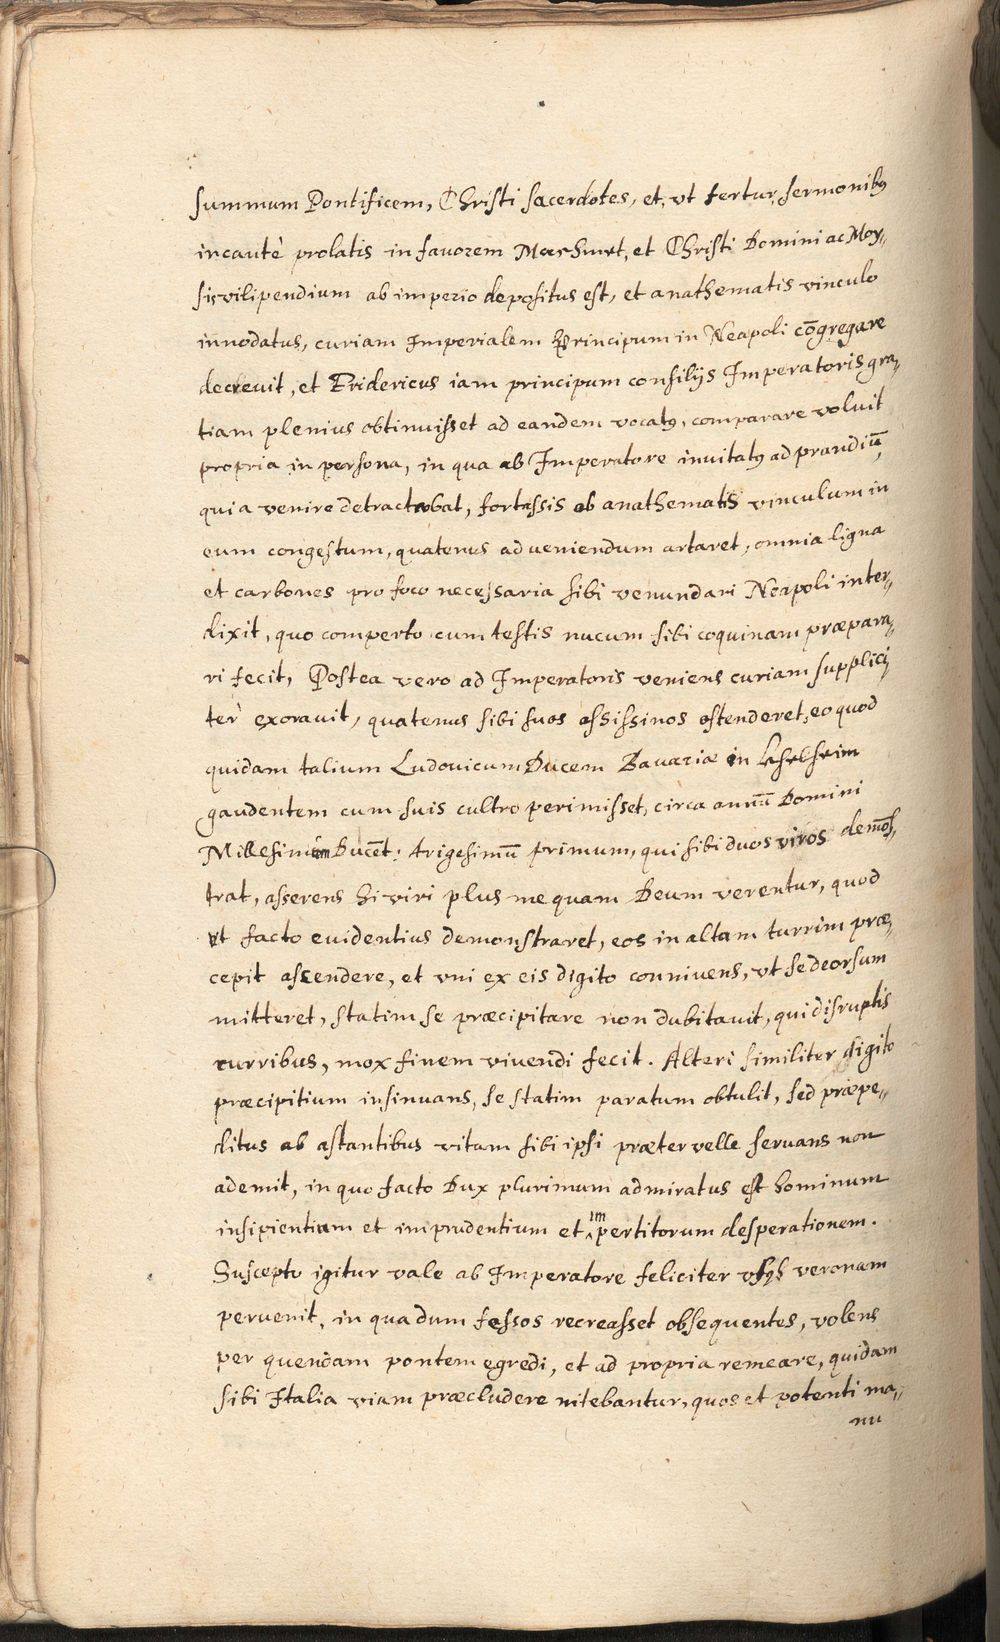 summum Pontificem, Christi sacerdotes, et, vt fertur, sermonibꝰ
incautè prolatis in fauorem Machmet, et Christi Domini ac Moy„
sis vilipendium ab imperio depositus est, et anathematis vinculo
innodatus, curiam Imperialem Principum in Neapoli cōgregare
decreuit, et Fridericus iam principum consilijs Imperatoris gra„
tiam plenius obtinuisset ad eandem vocatꝰ, comparare voluit
propria in persona, in qua ab Imperatore inuitatꝰ ad prandiū,
quia venire detractabat, fortassis ob anathematis vinculum in
eum congestum, quatenus ad veniendum artaret, omnia ligna
et carbones pro foco necessaria sibi venundari Neapoli inter„
dixit, quo comperto cum testis nucum sibi coquinam præpara„
ri fecit, Postea vero ad Imperatoris veniens curiam supplici„
ter exorauit, quatenus sibi suos assissinos ostenderet, eo quod
quidam talium Ludovicum Ducem Bauariæ in
gaudentem cum suis cultro perimisset, circa annū Domini
Millesimum Ducēt: trigesimū primum, qui sibi duos viros demōs„
trat, asserens hi viri plus me quam Deum verentur, quod
vt facto euidentius demonstraret, eos in altam turrim præ„
cepit ascendere, et vni ex eis digito connivens, vt se deorsum
mitteret, statim se præcipitare non dubitauit, qui disruptis
curribus, mox finem viuendi fecit. Alteri similiter digito
præcipitium insinuans, se statim paratum obtulit, sed præpe„
ditus ab astantibus vitam sibi ipsi præter velle seruans non
ademit, in quo facto Dux plurimum admiratus est hominum
insipientium et imprudentium et impertitorum desperationem.
Suscepto igitur vale ab Imperatore feliciter vsqꝫ veronam
peruenit, in qua dum fessos recreasset obsequentes, volens
per quendam pontem egredi, et ad propria remeare, quidam
sibi Italia viam præcludere nitebantur, quos et potenti ma„
nu